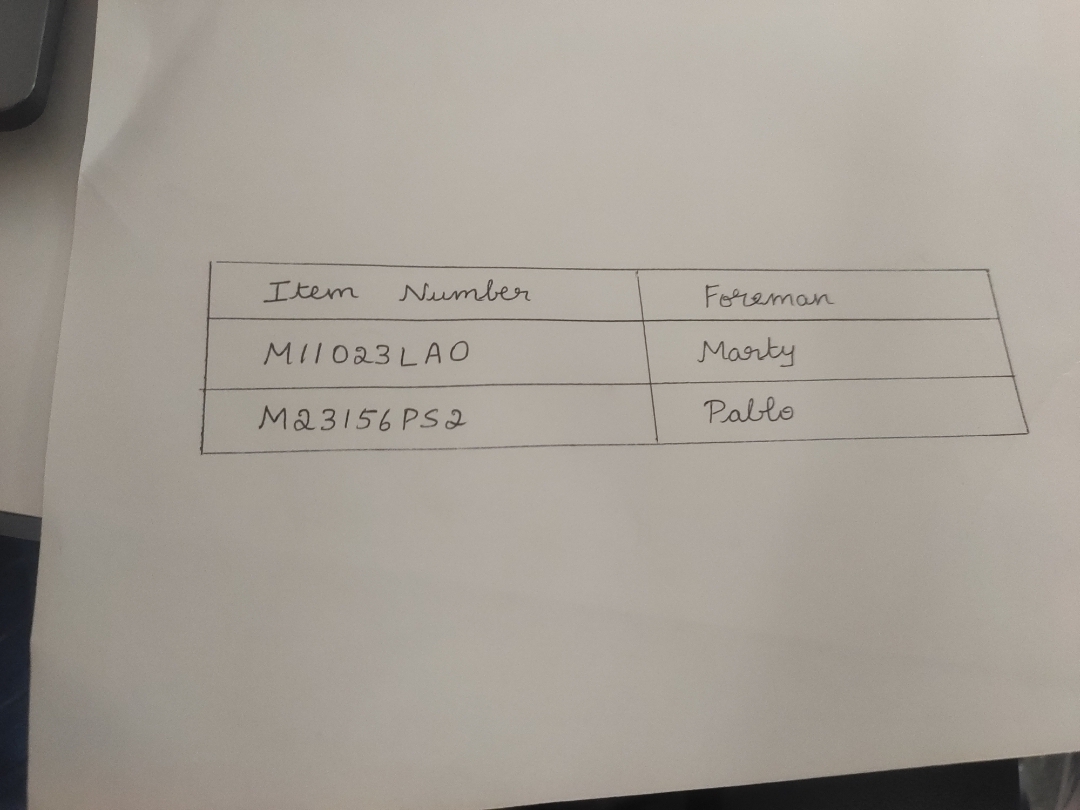 Item Number Foreman
M11023LAO Marty
M23156PS2 Pablo